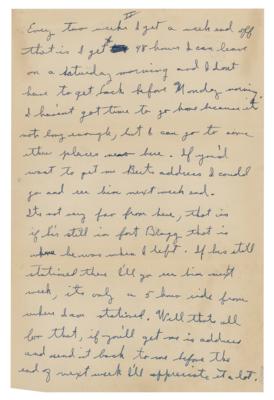 IV
Every two weeks I get a week end off
that is I get 48 hours I can leave
on a Saturday morning and I dont
have to get back before Monday morning.
I haven't got time to go home because it
not long enough, but I can go to some
other places near here. If you'd
want to get me Bert's address I could
go and see him next week end.
Its not very far from here, that is
if he's still in fort Bragg that is
where he was when I left. If he still
stationed there I'll go see him next
week, its only a 5 hour ride from
where I am stationed. Well thats all
for that, if you'll get me is address
and send it back to me before the
end of next week I'll appreciate it a lot.